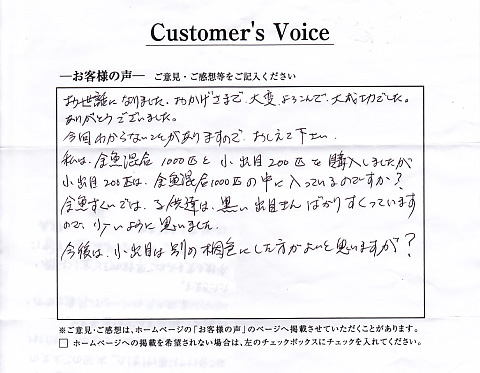 Customer's Voice
―お客様の声― ご意見・ご感想等をご記入ください
お世話になりました。おかげさまで、大変よろこんで、大成功でした。
ありがとうございました。
今回わからないことがありますので、おしえて下さい。
私は、金魚混合1000匹と小出目200匹を購入しましたが
小出目200匹は、金魚混合1000匹の中に入っているのですか?
金魚すくいでは、子供達は、黒い出目きんばかりすくっています
ので、少ないように思いました。
今後は、小出目は別の梱包にした方がよいと思いますが?
※ご意見・ご感想は、ホームページの「お客様の声」のページへ掲載させていただくことがあります。
□ ホームページへの掲載を希望されない場合は、左のチェックボックスにチェックを入れてください。